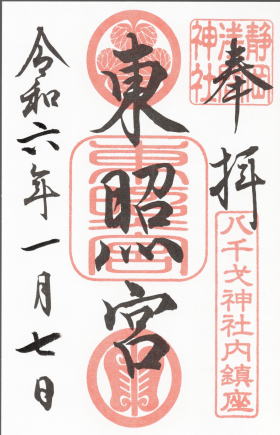 奉拝
静岡浅間神社
八千戈神社内鎮座
東照宮
令和六年一月七日